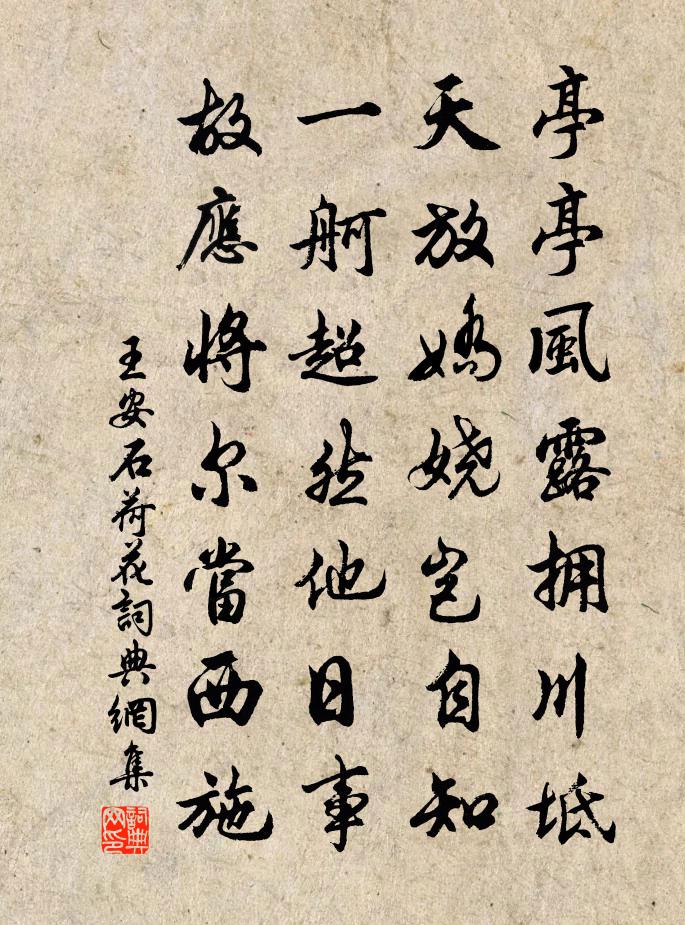 亭亭風露拥川坻
天放嬌娆岂自知
一舸超然他日事
故應将尔當西施
王安石荷花詞典網集
詞典网印